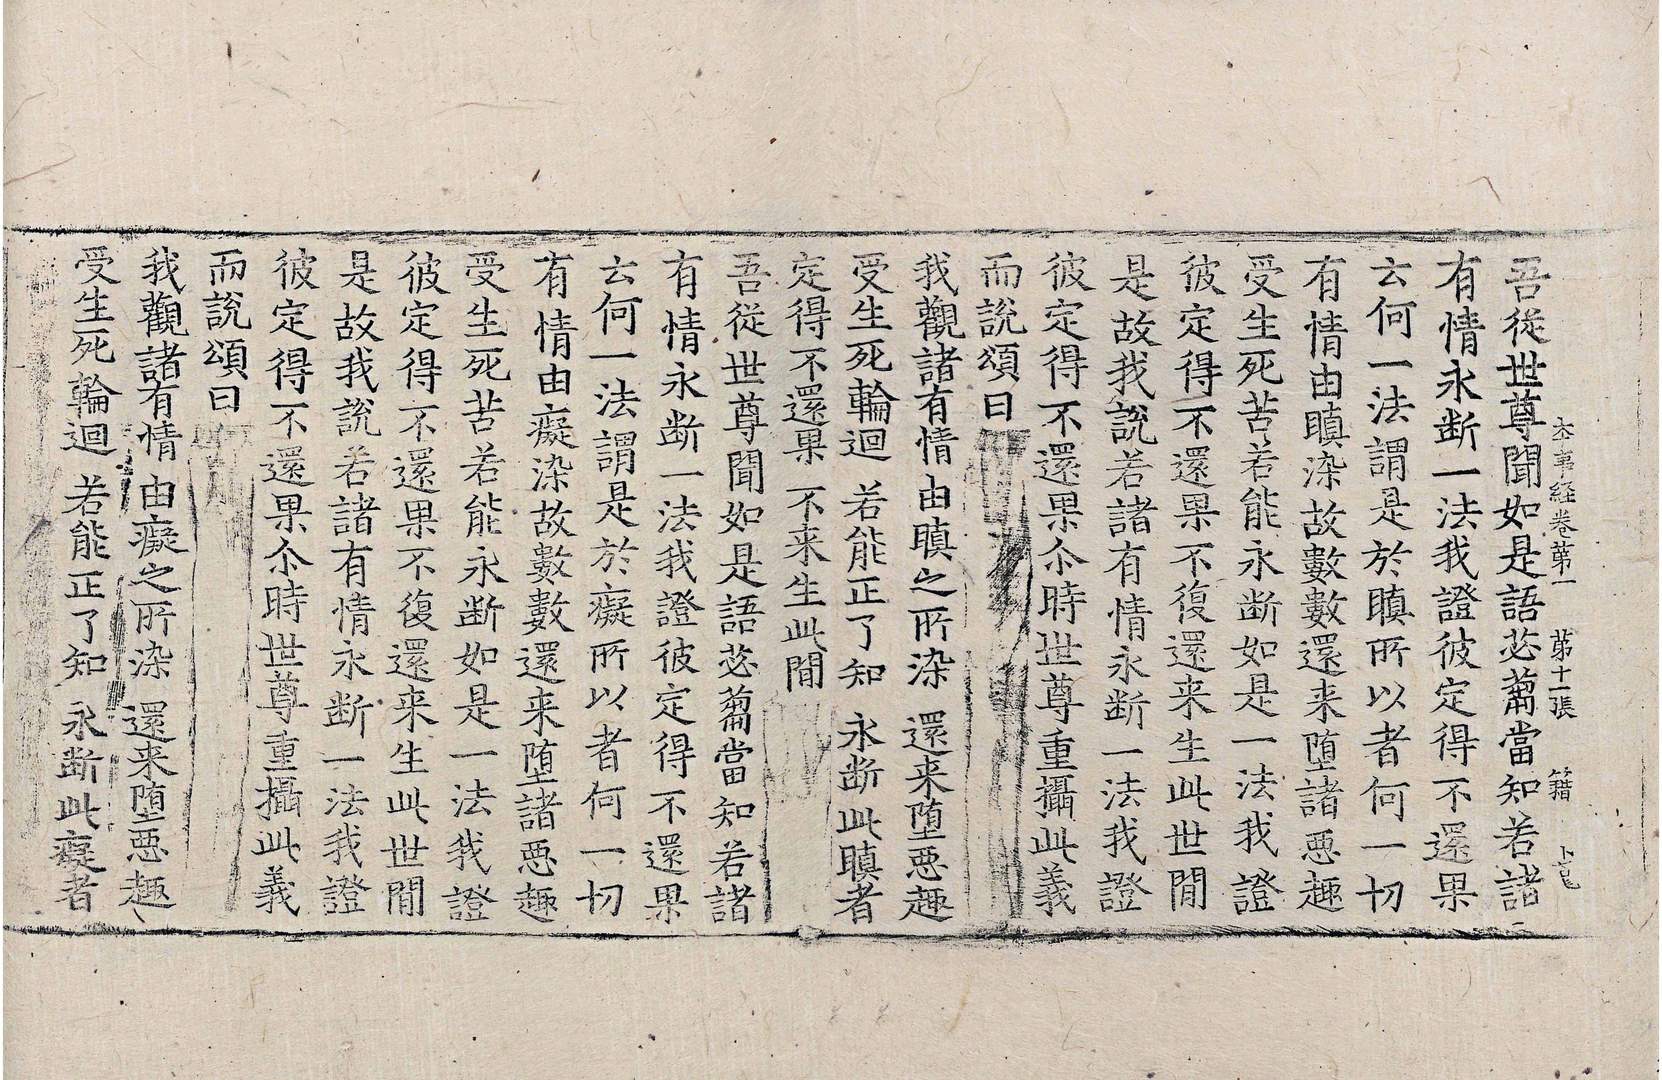 本事經卷第一 第十一張 籍
吾從世尊聞如是語苾蒭當知若諸
有情永断一法我證彼定得不還果
云何一法謂是於瞋所以者何一切
有情由瞋染故數數還来墮諸惡趣
受生死苦若能永断如是一法我證
彼定得不還果不復還来生此世間
是故我説若諸有情永断一法我證
彼定得不還果尒時世尊重攝此義
而説頌曰
我觀諸有情 由瞋之所染 還来墮惡趣
受生死輪迴 若能正了知 永断此瞋者
定得不還果 不来生此間
吾從世尊聞如是語苾蒭當知若諸
有情永断一法我證彼定得不還果
云何一法謂是於癡所以者何一切
有情由癡染故數數還来墮諸惡趣
受生死苦若能永断如是一法我證
彼定得不還果不復還来生此世間
是故我説若諸有情永断一法我證
彼定得不還果尒時世尊重攝此義
而説頌曰
我觀諸有情 由癡之所染 還来墮惡趣
受生死輪迴 若能正了知 永断此癡者